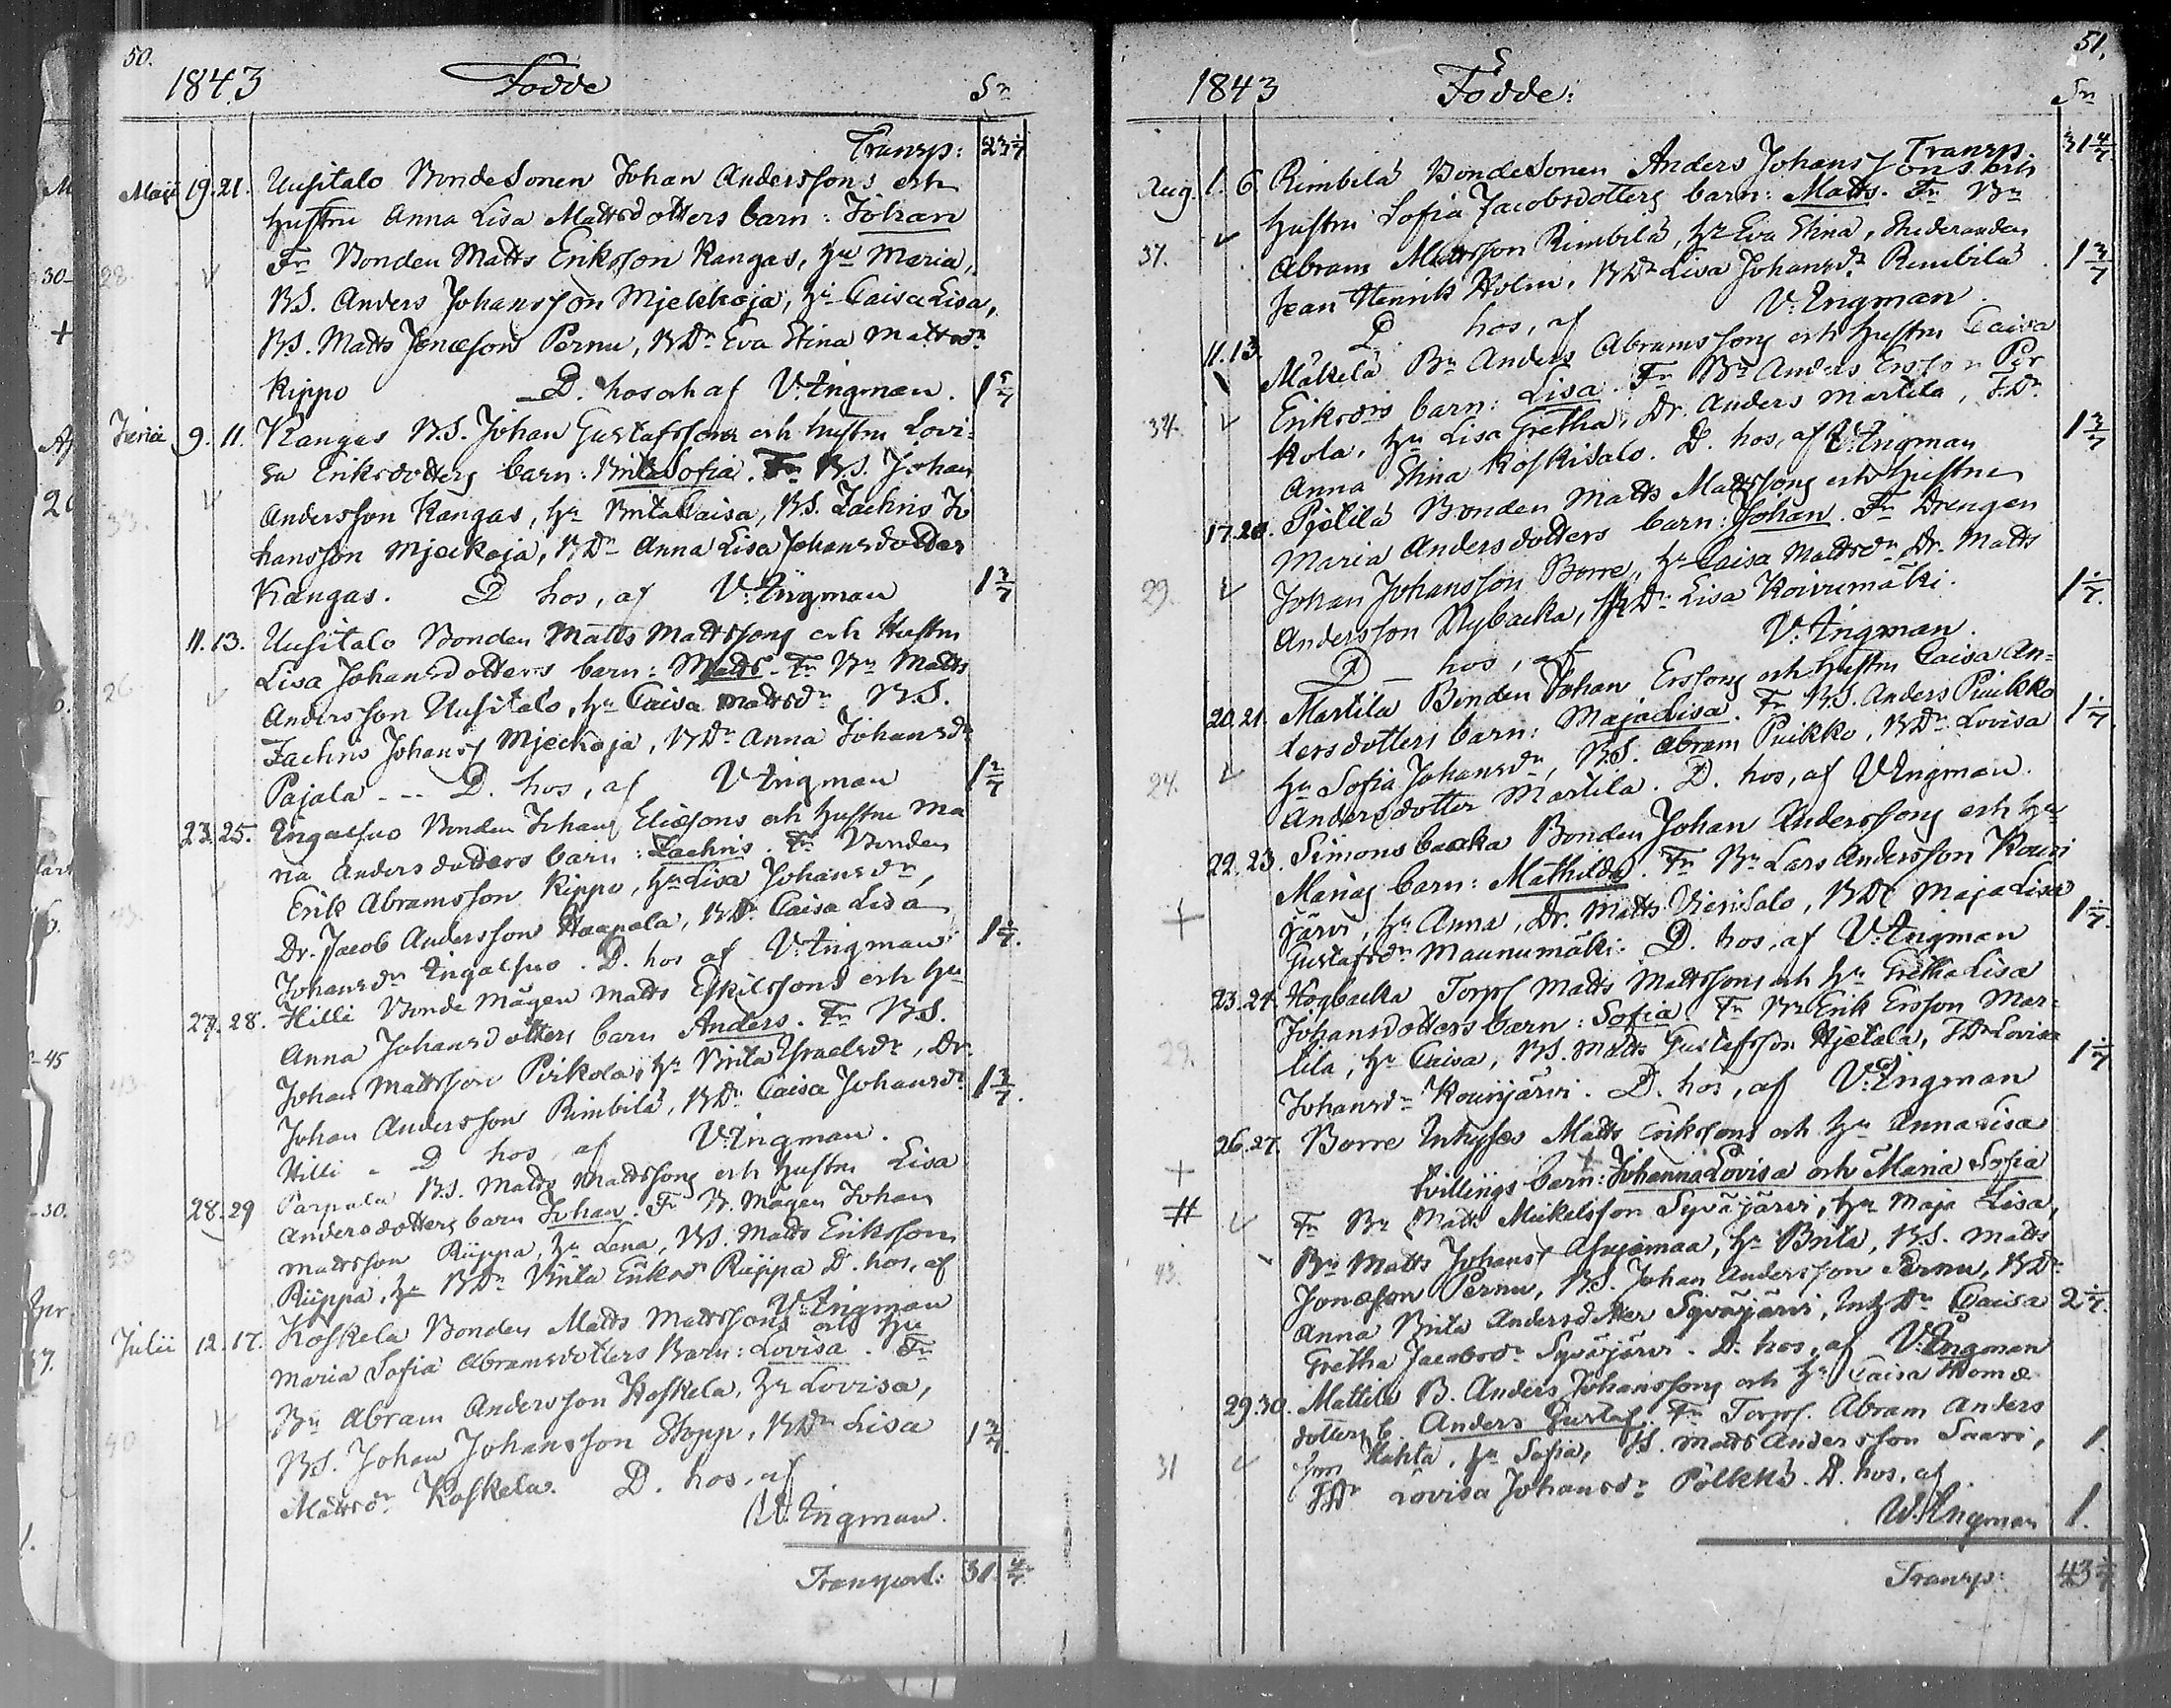 50.
1843 Födde Sn
Transp: 23 1/7
Maji 19. 21. Uusitalo Bondesonen Johan Anderssons och
hustru Anna Lisa Mattsdotters barn: Johan
28. Fr Bonden Matts Eriksson Kangas, hu Maria,
BS. Anders Johansson Mjekkoja, hu Caisa Lisa,
BS. Matts Jonæson Pernu, BDr Eva Stina Mattsdr
Kippo D. hos och af V: Ingman. 1 5/7
Junii 9. 11. Kangas BS. Johan Gustafssons och hustru Lovi-
sa Eriksdotters barn: Brita Sofia. Fr BS. Johan
33. Andersson Kangas, hu Brita Caisa, BS. Zachris Jo
hansson Mjeckoja, BDr Anna Lisa Johansdotter
Kangas. D hos, af V: Ingman 1 3/7
11. 13. Uusitalo Bonden Matts Mattssons och Hustru
Lisa Johansdotters barn: Matts. Fr Bn Matts
26. Andersson Uusitalo, hu Caisa Mattsdr BS.
Zachris Johanss Mjeckoja, BDr Anna Johansdr
Pajala - - D. hos, af V Ingman 1 2/7
23. 25. Ingalsuo Bonden Johans Eliæsons och hustru Ma
ria Andersdotters barn: Zachris. Fr Bonden
Erik Abramsson Kippo, hu Lisa Johansdr,
Dr. Jacob Andersson Haapala, BDr Caisa Lisa
Johansdr Ingalsuo. D. hos af V: Ingman 1
27. 28. Hilli Bonde Mågen Matts Eskilssons och hu
Anna Johansdotters barn Anders. Fr BS.
Johan Mattsson Pirkola, hu Brita Israelsdr, Dr.
Johan Andersson Rimbilä, BDr Caisa Johansdr 1 3/7.
Hilli - D hos, af V: Ingman.
28. 29 Parpala BS. Matts Mattssons och hustru Lisa
Andersdotters barn Johan. Fr B. Mågen Johan
23 Mattsson Riippa, hu Lena, BS. Matts Eriksson
Riippa, BDr Brita Eriksdr Riippa D. hos, af
V: Ingman
Julii 12. 17. Koskela Bonden Matts Mattssons och hu
Maria Sofia Abramsdotters Barn: Lovisa. Fr
Bn Abram Andersson Koskela, hu Lovisa,
40 BS. Johan Johansson Stopp, BDr Lisa
Mattsdr Koskela. D. hos, af
V: Ingman.
Transport: 31. 4/7.
51.
1843 Födde: Sn
Transp. 31 4/7
Aug. 1. 6 Rimbilä Bondesonen Anders Johanssons och
hustru Sofia Jacobsdotters barn: Matts. Fr Bn
37. Abram Mattsson Rimbilä, hu Eva Stina, Studeranden
Jean Henrik Holm, BDr Lisa Johansdr Rimbilä 1 3/7
D. hos, af V: Ingman
11. 13. Mäkelä Bn Anders Abramssons och hustru Caisa
Eriksdrs barn: Lisa. Fr Bn Anders Ersson Pir
34. kola, hu Lisa Gretha, Dr. Anders Martila, TDr
Anna Stina Koskisalo. D. hos, af V: Ingman 1 3/7
17. 20. Pjetilä Bonden Matts Mattssons och hustru
Maria Andersdotters barn: Johan. Fr Drengen
29. Johan Johansson Borre, hu Caisa Mattsdr, Dr. Matts
Andersson Nybacka, BDr Lisa Koivumäki. 1/7.
D hos, af V: Ingman.
20. 21. Martila Bonden Johan Erssons och hustru Caisa An-
dersdotters barn: Maja Lisa. Fr BS. Anders Puikko
24. hu Sofia Johansdr, BS. Abram Puikko, BDr Lovisa 1/7
Andersdotter Martila. D. hos, af V Ingman.
22. 23. Simonsbacka Bonden Johan Anderssons och hu
Marias barn: Mathilda. Fr Bn Lars Andersson Kouri
+ järvi, hu Anna, Dr. Matts Vierisalo, BDr Maja Lisa
Gustafsdr Maunumäki. D. hos, af V: Ingman 1/7.
23. 24. Högbacka Torps Matts Mattssons och hu Gretha Lisa
Johansdotters barn: Sofia. Fr Bn Erik Ersson Mar-
29. tila, hu Caisa, BS. Matts Gustafsson Hjetala, TDr Lovisa
Johansdr Kourijärvi. D. hos, af V: Ingman 1/7
26. 27. Borre Inhyses Matts Erikssons och hu Anna Lisa
+ tvillings barn: Johanna Lovisa och Maria Sofia
# Fr Bn Matts Mickelsson Syväjärvi, hu Maja Lisa,
Bn Matts Johanss Ahujemaa, hu Brita, BS. Matts
43. Jonæson Pernu, BS. Johan Andersson Pernu, BDr
Anna Brita Andersdotter Syväjärvi, InhDr Caisa 2 1/7.
Gretha Jacobsdr Syväjärvi. D. hos, af V: Ingman
29. 30. Mattila B. Anders Johanssons och hu Caisa Thomæ
dotters b. Anders Gustaf. Fr Torps. Abram Anders
31 son Kahta, hu Sofia, BS. Matts Andersson Saari, 1.
TDr Lovisa Johansdr Pölkki. D. hos, af
V: Ingman 1.
Transp: 43 1/7